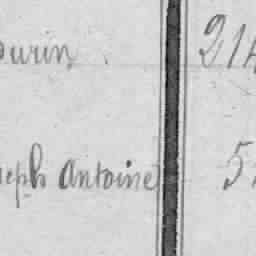 durin 214
seph Antoine 5